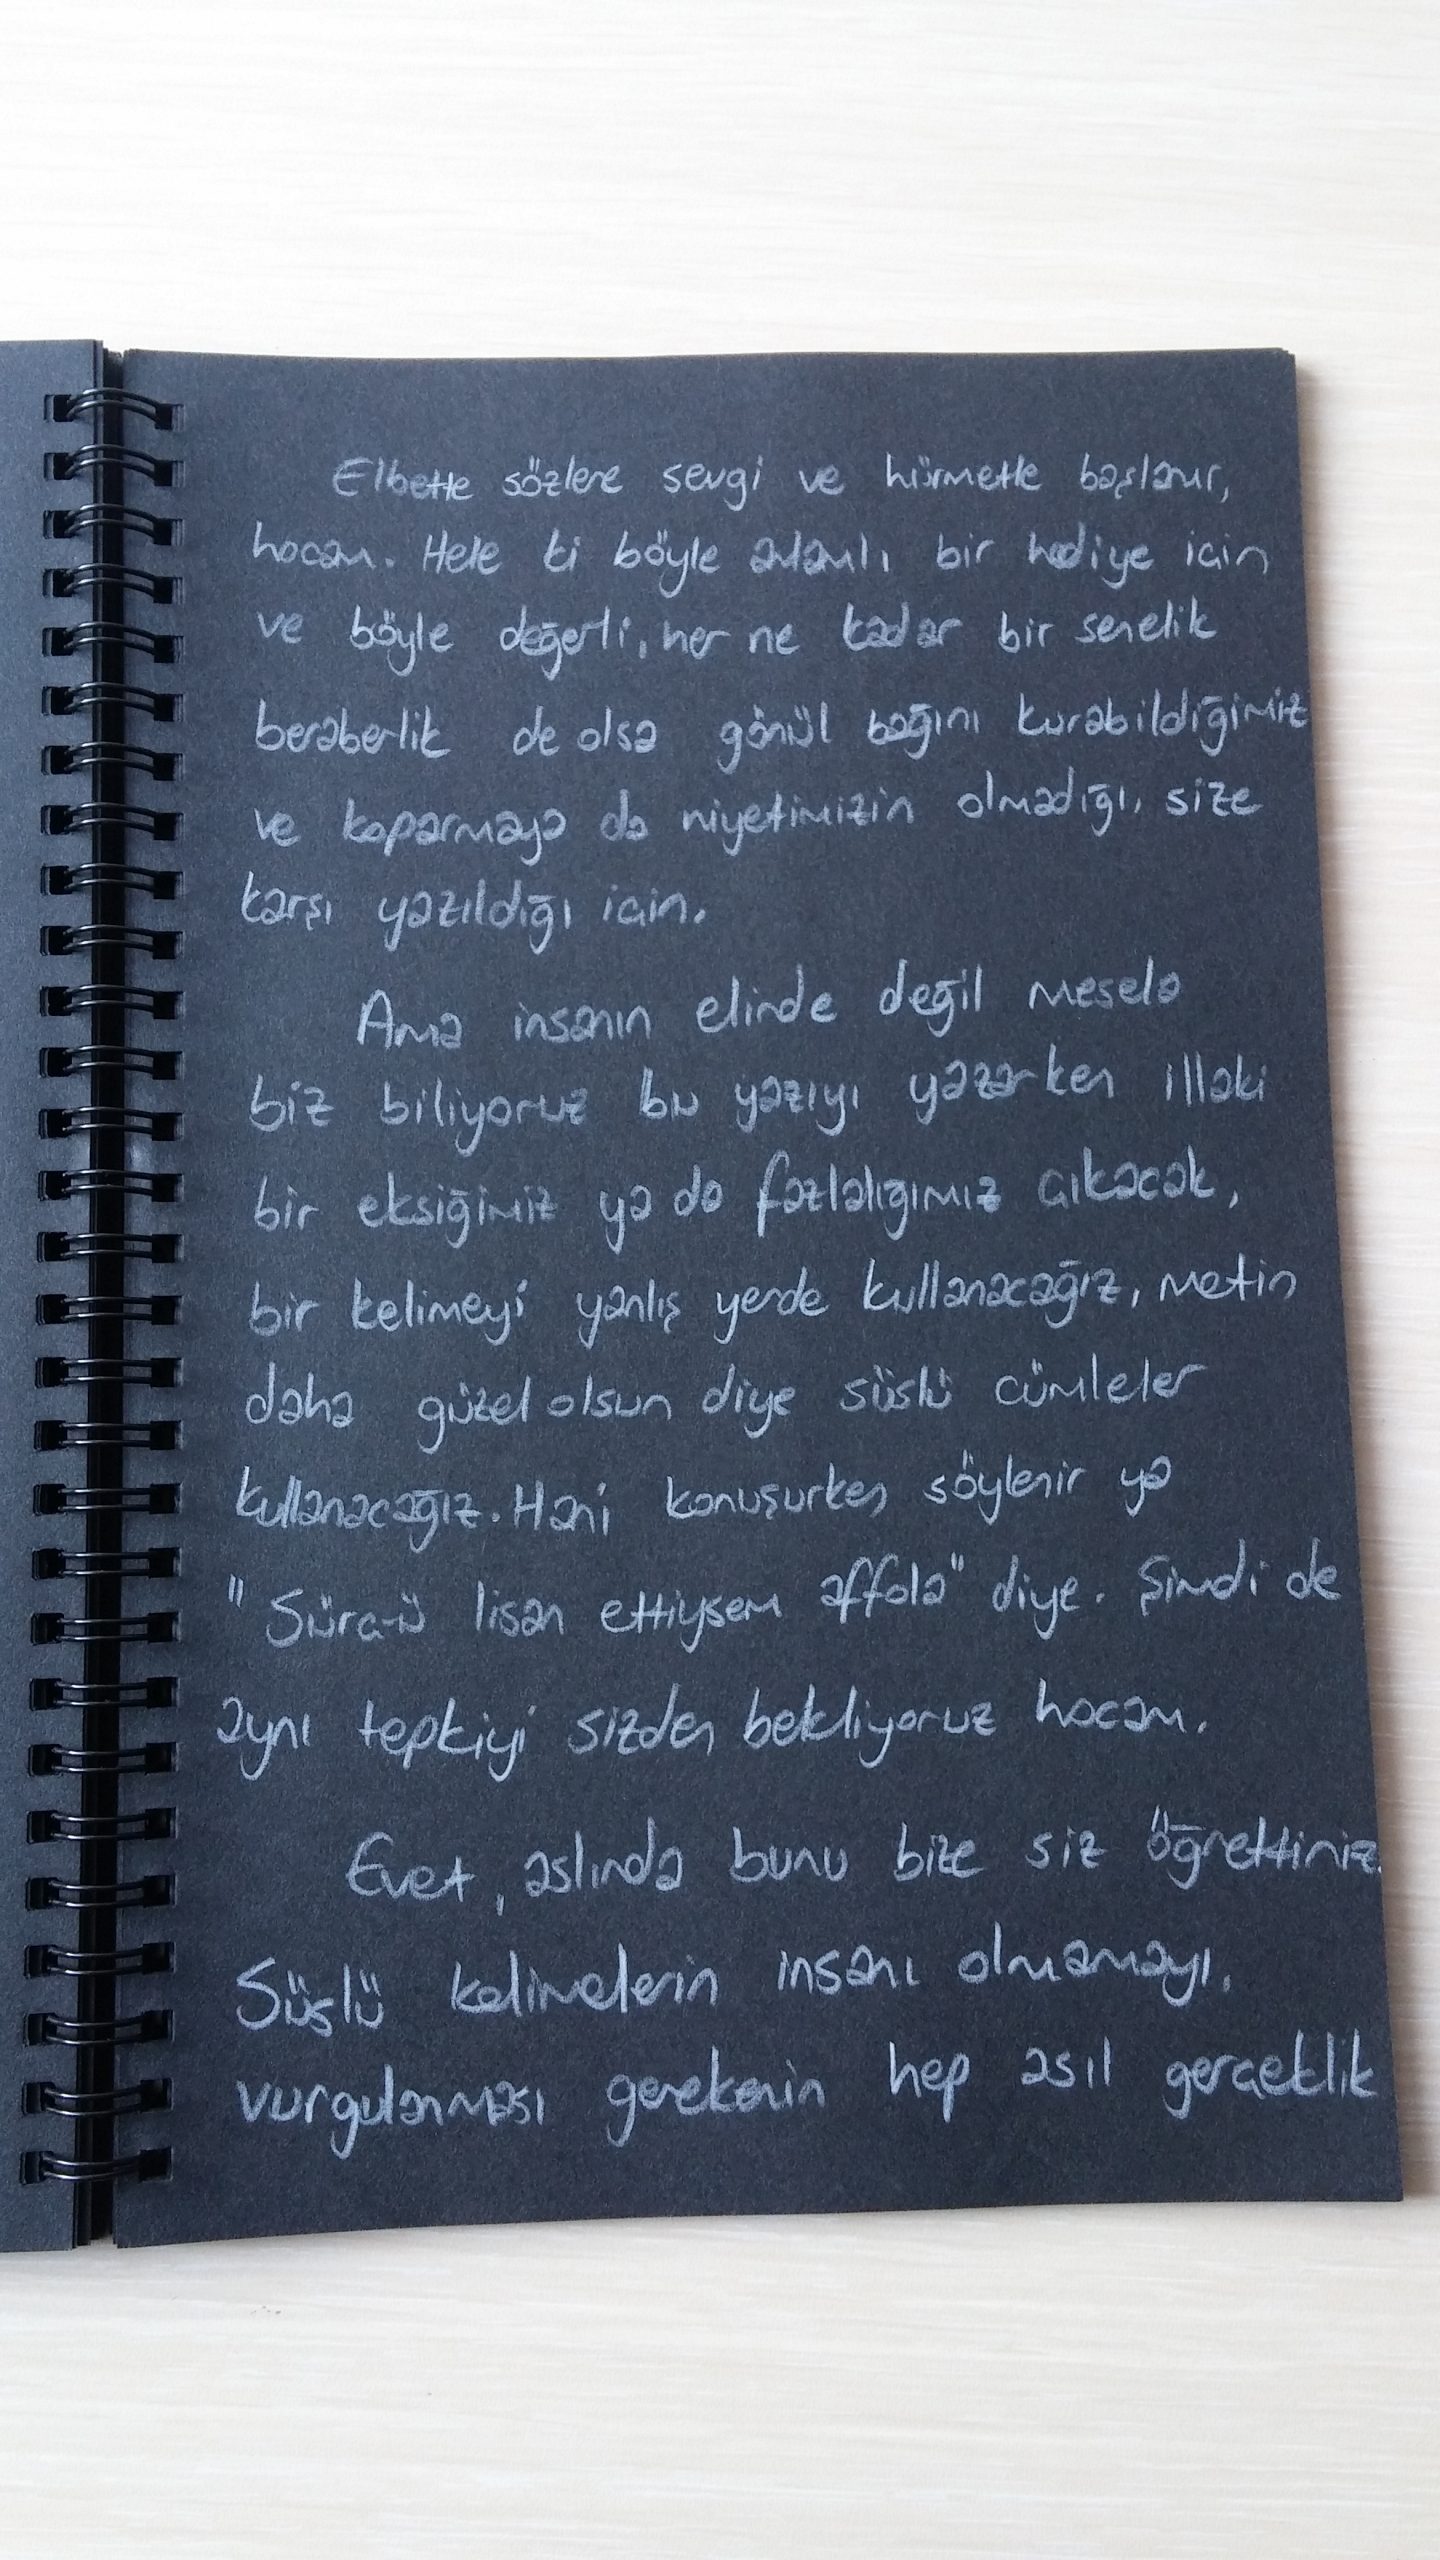 Elbette sözlere sevgi ve hürmetle başlanır,
hocam. Hele ki böyle anlamlı bir hediye için
ve böyle değerli, her ne kadar bir senelik
beraberlik de olsa gönül bağını kurabildiğimiz
ve koparmaya da niyetimizin olmadığı, size
karşı yazıldığı için.
Ama insanın elinde değil mesela
biz biliyoruz bu yazıyı yazarken illaki
bir eksiğimiz ya da fazlalığımız çıkacak,
bir kelimeyi yanlış yerde kullanacağız, metin
daha güzel olsun diye süslü cümleler
kullanacağız. Hani konuşurken söylenir ya
"Sürc-ü lisan ettiysem affola" diye. Şimdi de
aynı tepkiyi sizden bekliyoruz hocam.
Evet, aslında bunu bize siz öğrettiniz.
Süslü kelimelerin insanı olmamayı,
vurgulanması gerekenin hep asıl gerçeklik